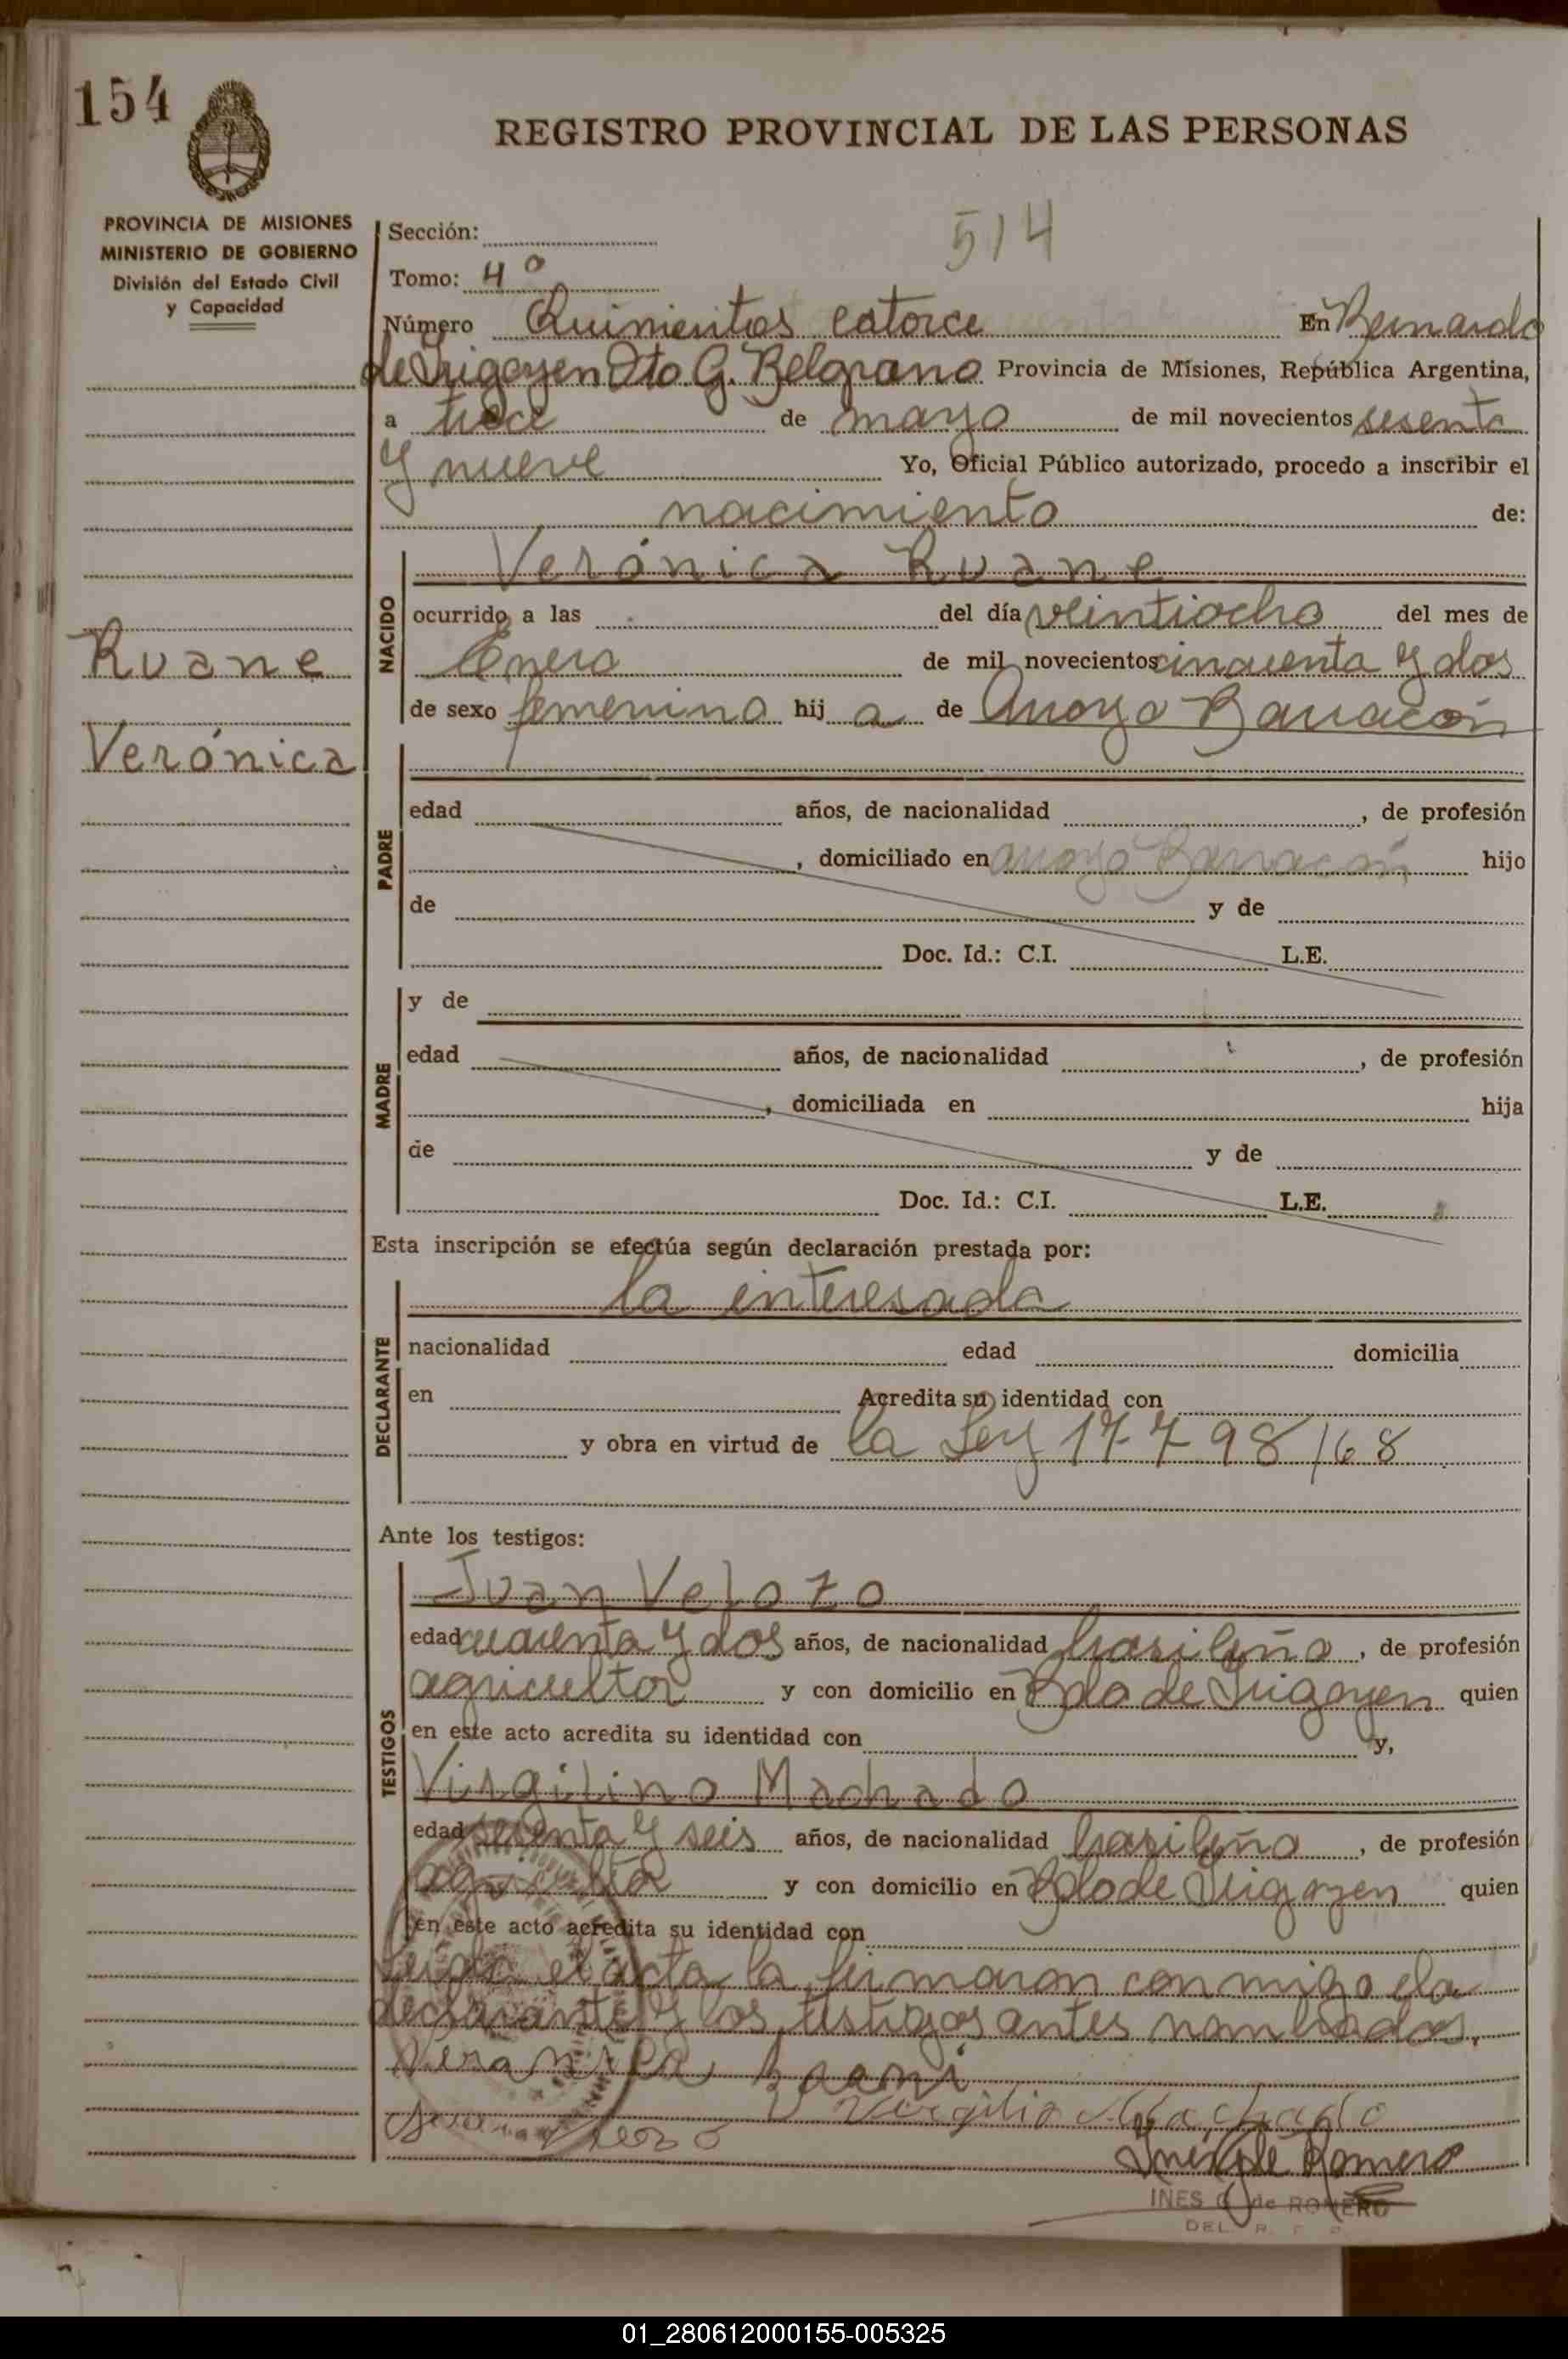 154
REGISTRO PROVINCIAL DE LAS PERSONAS
PROVINCIA DE MISIONES
MINISTERIO DE GOBIERNO
División del Estado Civil
y Capacidad
514
Sección:
Tomo: 4º
Número Quinientos catorce En Bernardo
de Irigoyen Dto G. Belgrano Provincia de Misiones, República Argentina,
a trece de mayo de mil novecientos sesenta
y nueve Yo, Oficial Público autorizado, procedo a inscribir el
nacimiento de:
Ruane
Verónica
NACIDO
Verónica Ruane
ocurrido a las del día veintiocho del mes de
Enero de mil novecientos cincuenta y dos
de sexo femenino hij a de Arroyo Barracón
PADRE
edad años, de nacionalidad , de profesión
, domiciliado en arroyo Barracón hijo
de y de
Doc. Id.: C.I. L.E.
MADRE
y de
edad años, de nacionalidad , de profesión
, domiciliada en hija
de y de
Doc. Id.: C.I. L.E.
Esta inscripción se efectúa según declaración prestada por:
DECLARANTE
la interesada
nacionalidad edad domicilia
en Acredita su identidad con
y obra en virtud de la Ley 17798/68
Ante los testigos:
TESTIGOS
Juan Velozo
edad cuarenta y dos años, de nacionalidad brasileño, de profesión
agricultor y con domicilio en Bdo de Irigoyen quien
en este acto acredita su identidad con y,
Virgilino Machado
edad sesenta y seis años, de nacionalidad brasileño, de profesión
agricultor y con domicilio en Bdo de Irigoyen quien
en este acto acredita su identidad con
Leída el acta la firmaron conmigo la
declarante y los testigos antes nombrados.
Veranica
Virgilio Machado
Ines G de Romero
INES G de ROMERO
DEL. R. P. P.
01_280612000155-005325